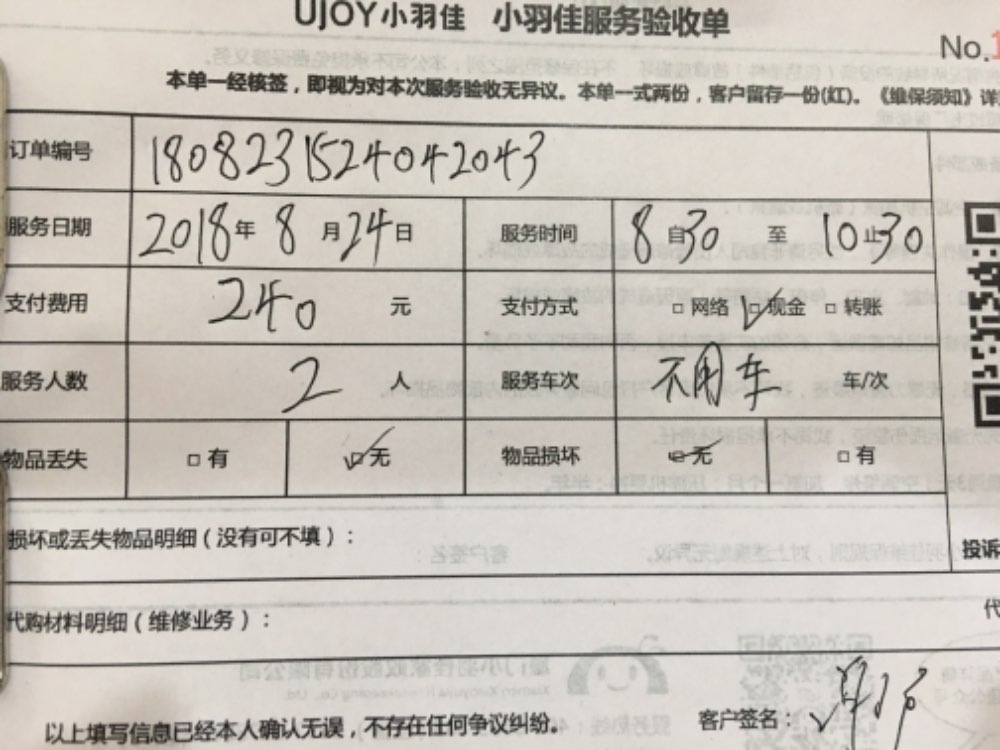 UJOY小羽佳 小羽佳服务验收单
No.1
本单一经核签，即视为对本次服务验收无异议。本单一式两份，客户留存一份(红)。《维保须知》详
订单编号 1808231524042043
服务日期 2018年 8 月24日 服务时间 8自30 至 10止30
支付费用 240 元 支付方式 □ 网络 ☑现金 □ 转账
服务人数 2 人 服务车次 不用车 车/次
物品丢失 □ 有 ☑无 物品损坏 ☑无 □ 有
损坏或丢失物品明细（没有可不填）：
投诉
代购材料明细（维修业务）：
代
以上填写信息已经本人确认无误，不存在任何争议纠纷。 客户签名：